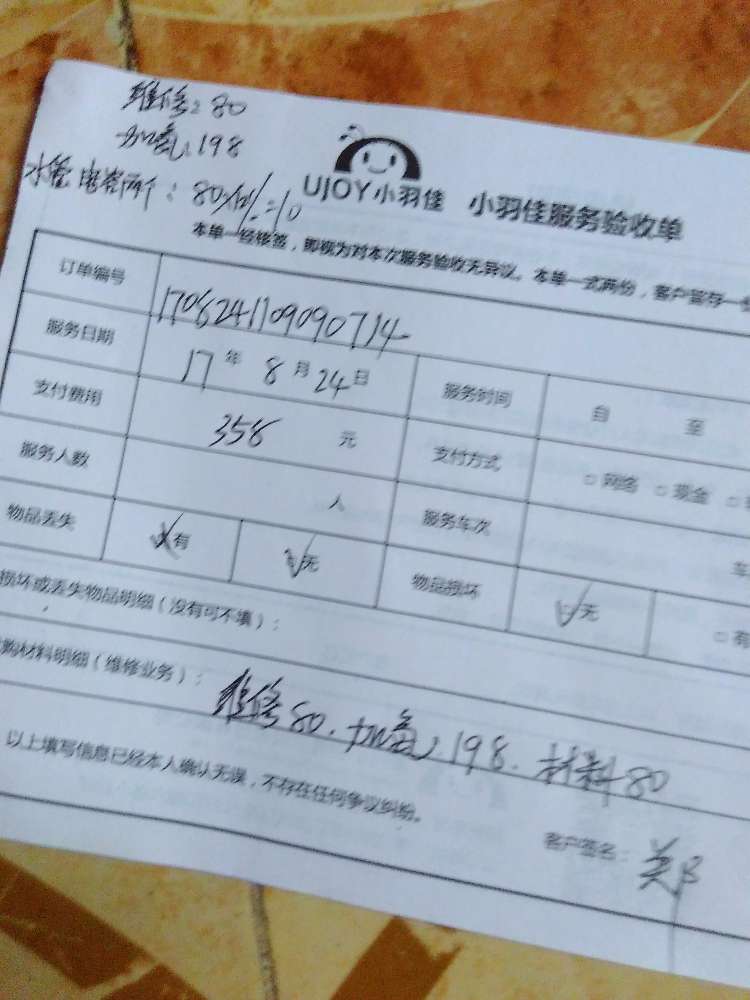 维修：80
加氟：198
水管 电容两个：80
UJOY小羽佳 小羽佳服务验收单
本单一经核签，即视为对本次服务验收无异议。本单一式两份，客户留存一
订单编号 1708241109090714
服务日期 17年8月24日 服务时间 自 至
支付费用 358元 支付方式 □网络 □现金
服务人数 人 服务车次 车
物品丢失 有 ✓无 物品损坏 ✓无 □有
损坏或丢失物品明细（没有可不填）：
购材料明细（维修业务）： 维修80.加氟：198.材料80
以上填写信息已经本人确认无误，不存在任何争议纠纷。
客户签名：郑